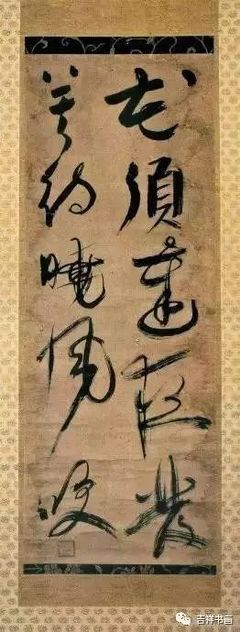 花須連夜發
莫待曉風吹
吉祥书画